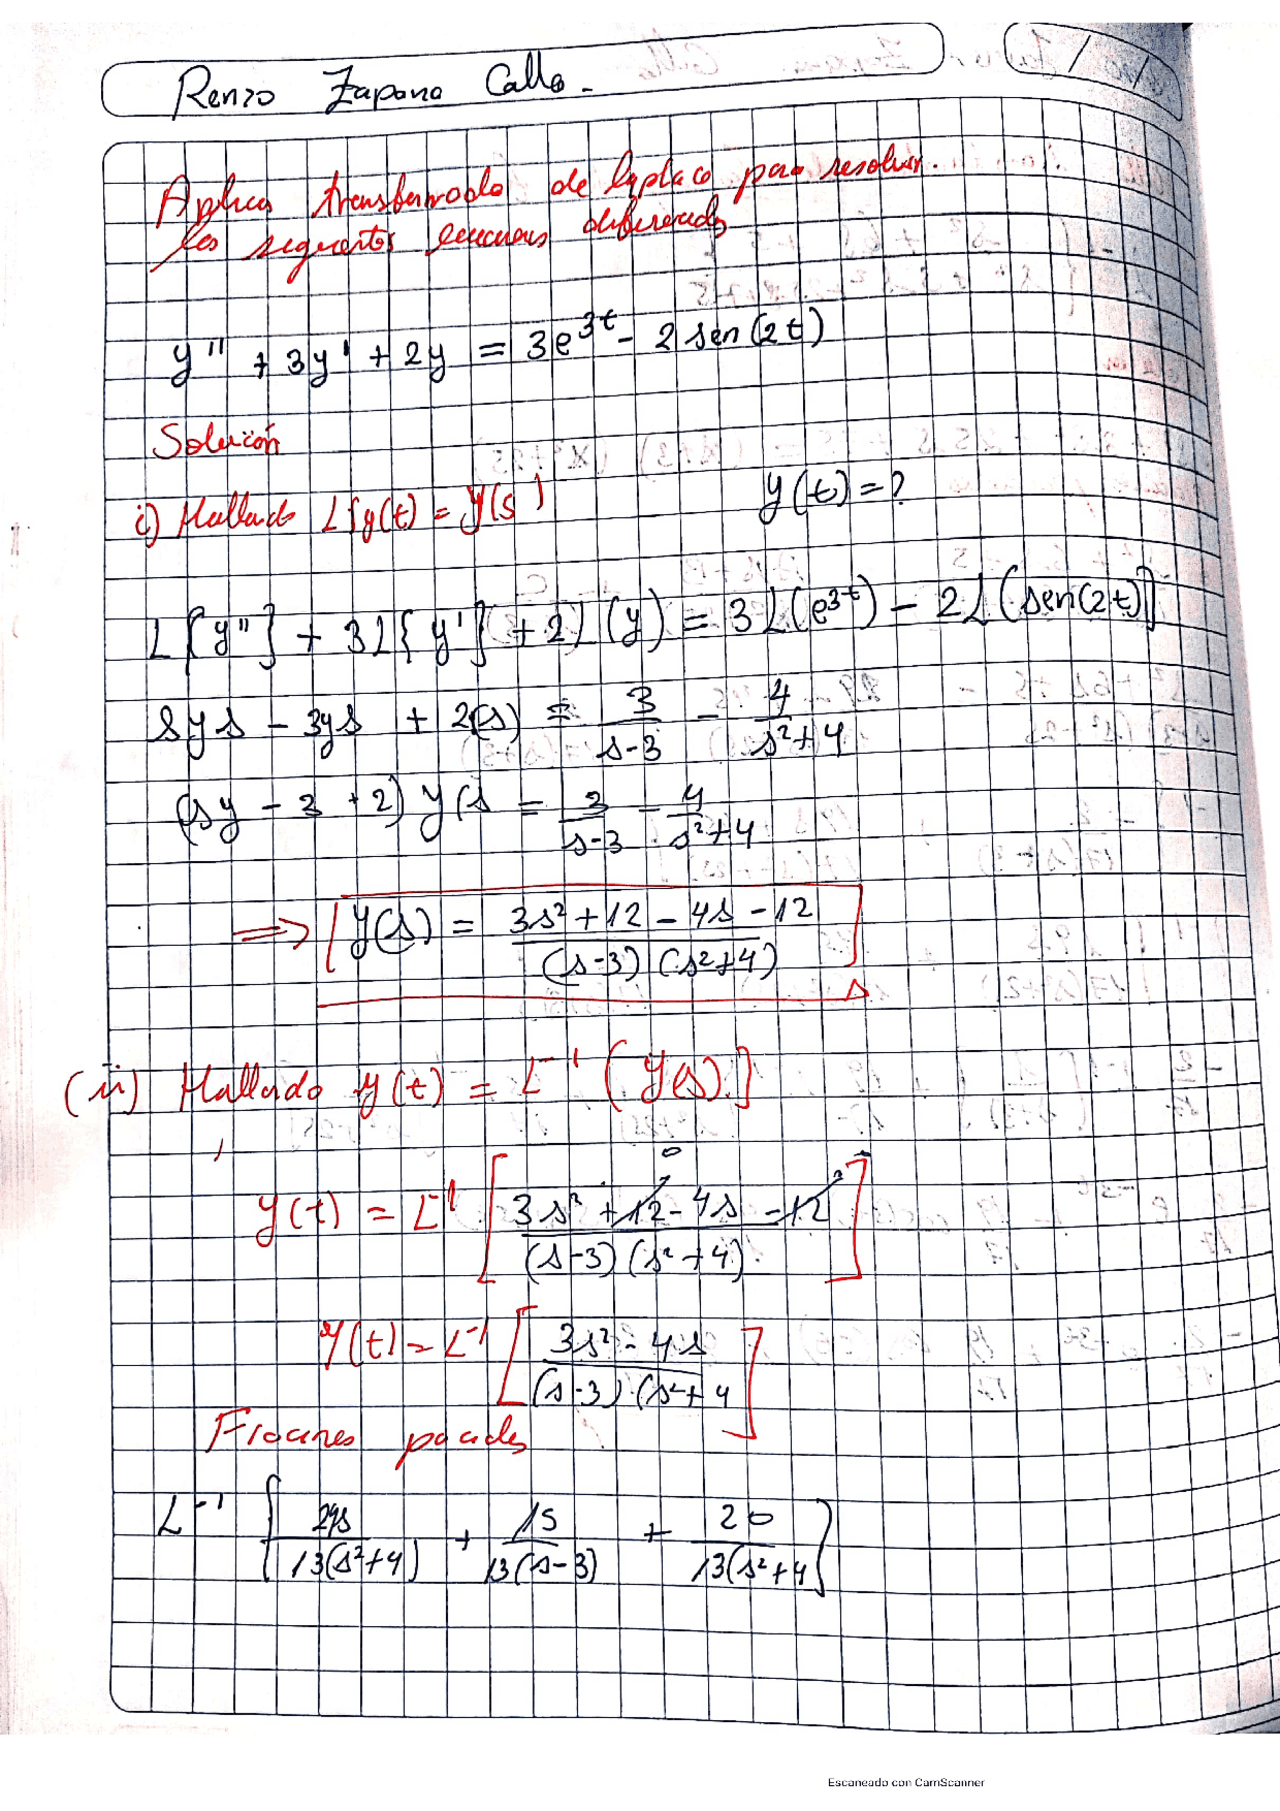 Renzo Zapana Calla.
Aplicar transformada de laplace para resolver.
las siguientes ecuaciones diferenciales
y'' + 3y' + 2y = 3e^3t - 2 sen(2t)
Solución
i) Hallando L{y(t) = y(s)
y(t) = ?
L{y''} + 3L{y'} + 2L(y) = 3L(e^3t) - 2L(sen(2t)]
sys - 3ys + 2(s) = 3/(s-3) - 4/(s²+4)
(sy - 3 + 2) y(s = 3/(s-3) - 4/(s²+4)
⇒ [y(s) = (3s² + 12 - 4s - 12)/((s-3)(s²+4))]
(ii) Hallando y(t) = L⁻¹ (y(s).]
0
y(t) = L⁻¹ [(3s² + 12 - 4s - 12)/((s-3)(s²+4))]
y(t) = L⁻¹ [(3s² - 4s)/((s-3)(s²+4)]
L⁻¹ {29s/(13(s²+4)) + 15/(13(s-3)) + 20/(13(s²+4)}
Escaneado con CamScanner